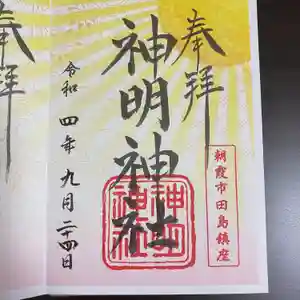 奉拝
神明神社
神明神社
朝霞市田島鎮座
令和四年九月二十四日
奉拝